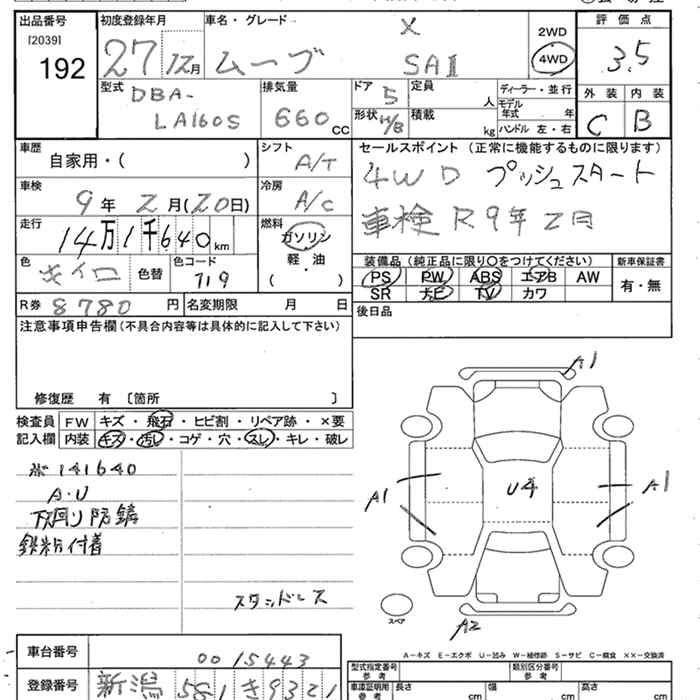 出品番号 初度登録年月 車名・グレード 評価点
[2039]
192
27 12月 ムーブ X SAⅡ
2WD
4WD
3.5
型式 DBA-LA160S
排気量 660 cc
ドア 5 定員 人
形状 H/B 積載 kg
ディーラー・並行
モデル年式 年
ハンドル 左・右
外装 内装
C B
車歴 自家用・( )
シフト A/T
セールスポイント (正常に機能するものに限ります)
4WD プッシュスタート
車検 R9年2月
車検 9年 2月(20日)
冷房 A/C
走行 14万1千640km
燃料 ガソリン
軽・油
( )
色 キイロ 色替 色コード 719
装備品(純正品に限り○をつけてください) 新車保証書
PS PW ABS エアB AW
SR ナビ TV カワ
有・無
R券 8780円 名変期限 月 日
後日品
注意事項申告欄(不具合内容等は具体的に記入して下さい)
修復歴 有 〔箇所 〕
検査員記入欄
FW キズ・飛石・ヒビ割・リペア跡・×要
内装 キズ・汚れ・コゲ・穴・スレ・キレ・破レ
141640
A・U
下回り防錆
鉄粉付着
スタッドレス
A1
A1
U4
A1
A2
スペア
A-キズ E-エクボ U-凹み W-補修跡 S-サビ C-腐食 ××-交換済
車台番号 0015443
型式指定番号 参考
類別区分番号 参考
登録番号 新潟 581 き 9321
車庫証明用 参考 長さ cm 幅 cm 高さ cm